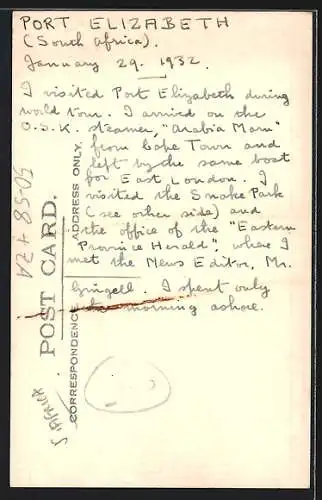 PORT ELIZABETH
(South Africa).
January 29. 1932.
I visited Port Elizabeth during
world tour. I arrived on the
O.S.K. steamer, "Arabia Maru"
from Cape Town and
left by the same boat
for East London. I
visited the Snake Park
(see other side) and
the office of the "Eastern
Province Herald", where I
met the News Editor, Mr.
Gingell. I spent only
morning ashore.
POST CARD.
CORRESPONDENCE
ADDRESS ONLY.
5058 + ZA